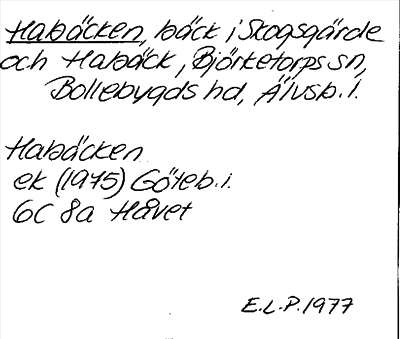 Habäcken, bäck i Skogsgärde
och Habäck, Björketorps sn,
Bollebygds hd, Älvsb. l.
Habäcken
ek (1975) Göteb. i.
6C 8a Håvet
E.L.P. 1977